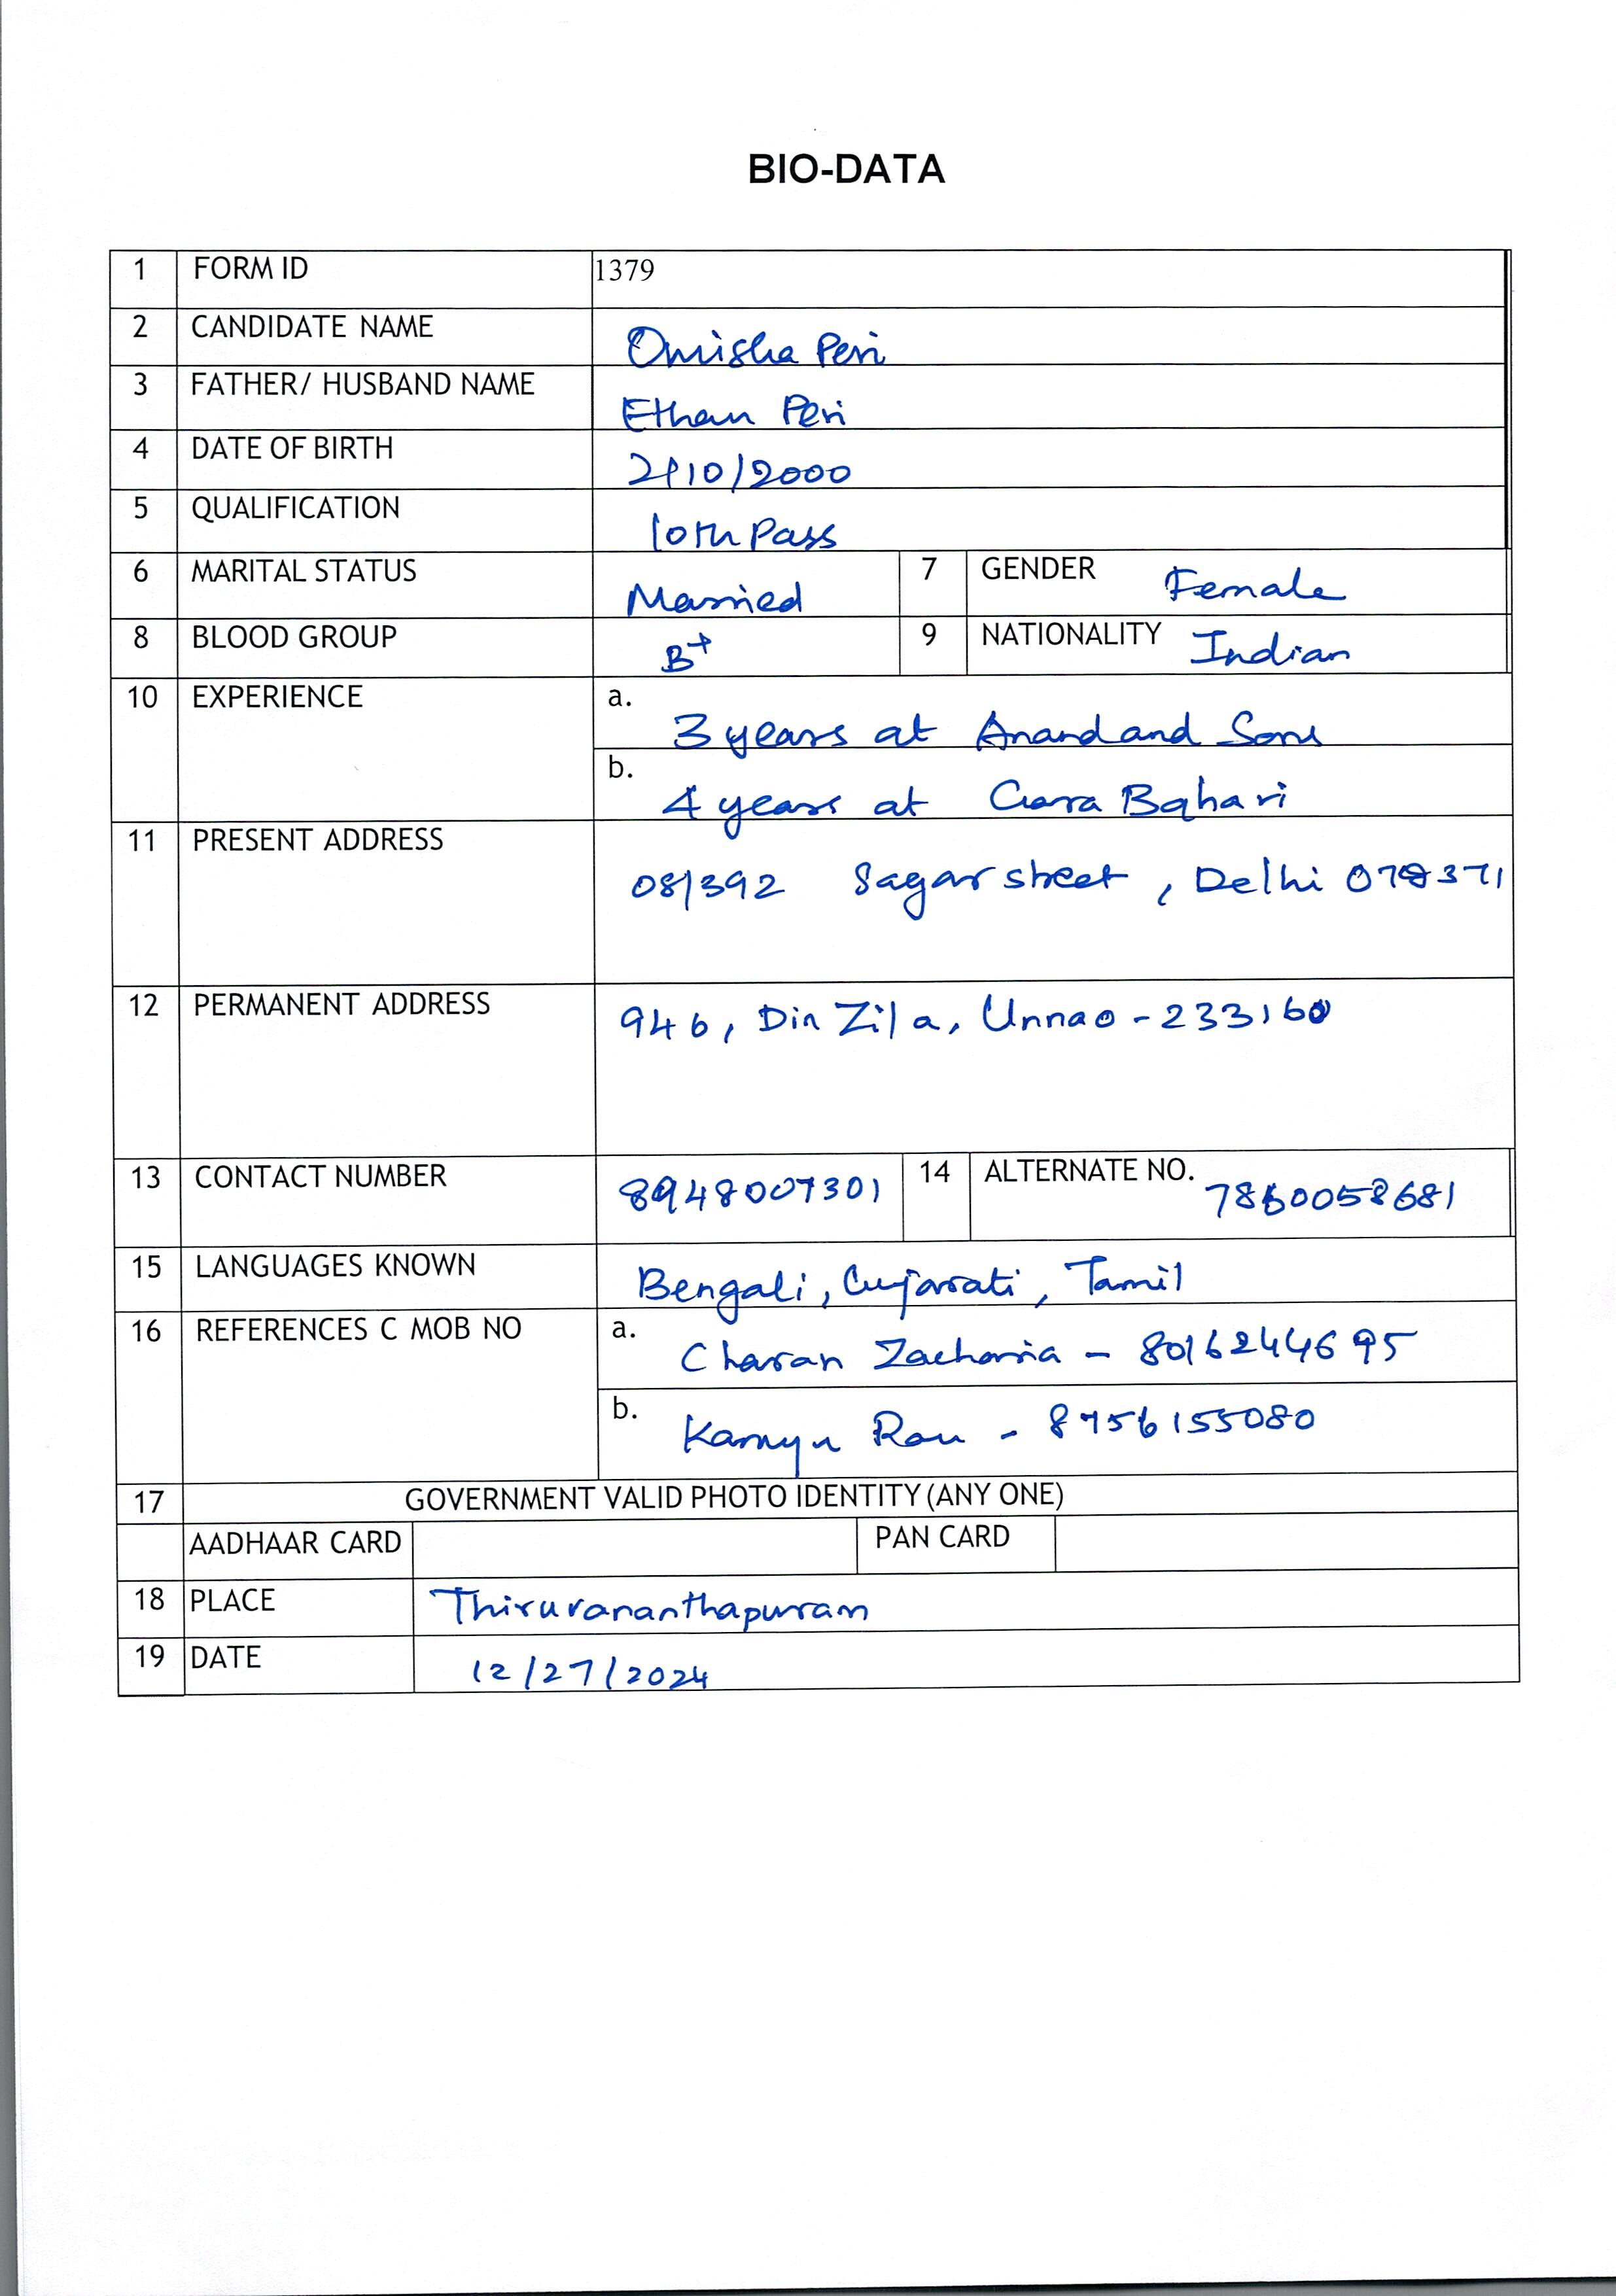 BIO-DATA
1 FORM ID 1379
2 CANDIDATE NAME Omisha Peri
3 FATHER/ HUSBAND NAME Ethan Peri
4 DATE OF BIRTH /10/2000
5 QUALIFICATION 10th Pass
6 MARITAL STATUS Married 7 GENDER Female
8 BLOOD GROUP B+ 9 NATIONALITY Indian
10 EXPERIENCE a. 3 years at Anand and Sons
b. 4 years at
11 PRESENT ADDRESS 08/392 Sagar street, Delhi
12 PERMANENT ADDRESS 946, Din Zila, Unnao - 233160
13 CONTACT NUMBER 8948007301 14 ALTERNATE NO. 7860058681
15 LANGUAGES KNOWN Bengali, Gujarati, Tamil
16 REFERENCES C MOB NO a. Charan Zacharia - 8016244695
b. - 8756155080
17 GOVERNMENT VALID PHOTO IDENTITY (ANY ONE)
AADHAAR CARD PAN CARD
18 PLACE Thiruvananthapuram
19 DATE 12/27/2024